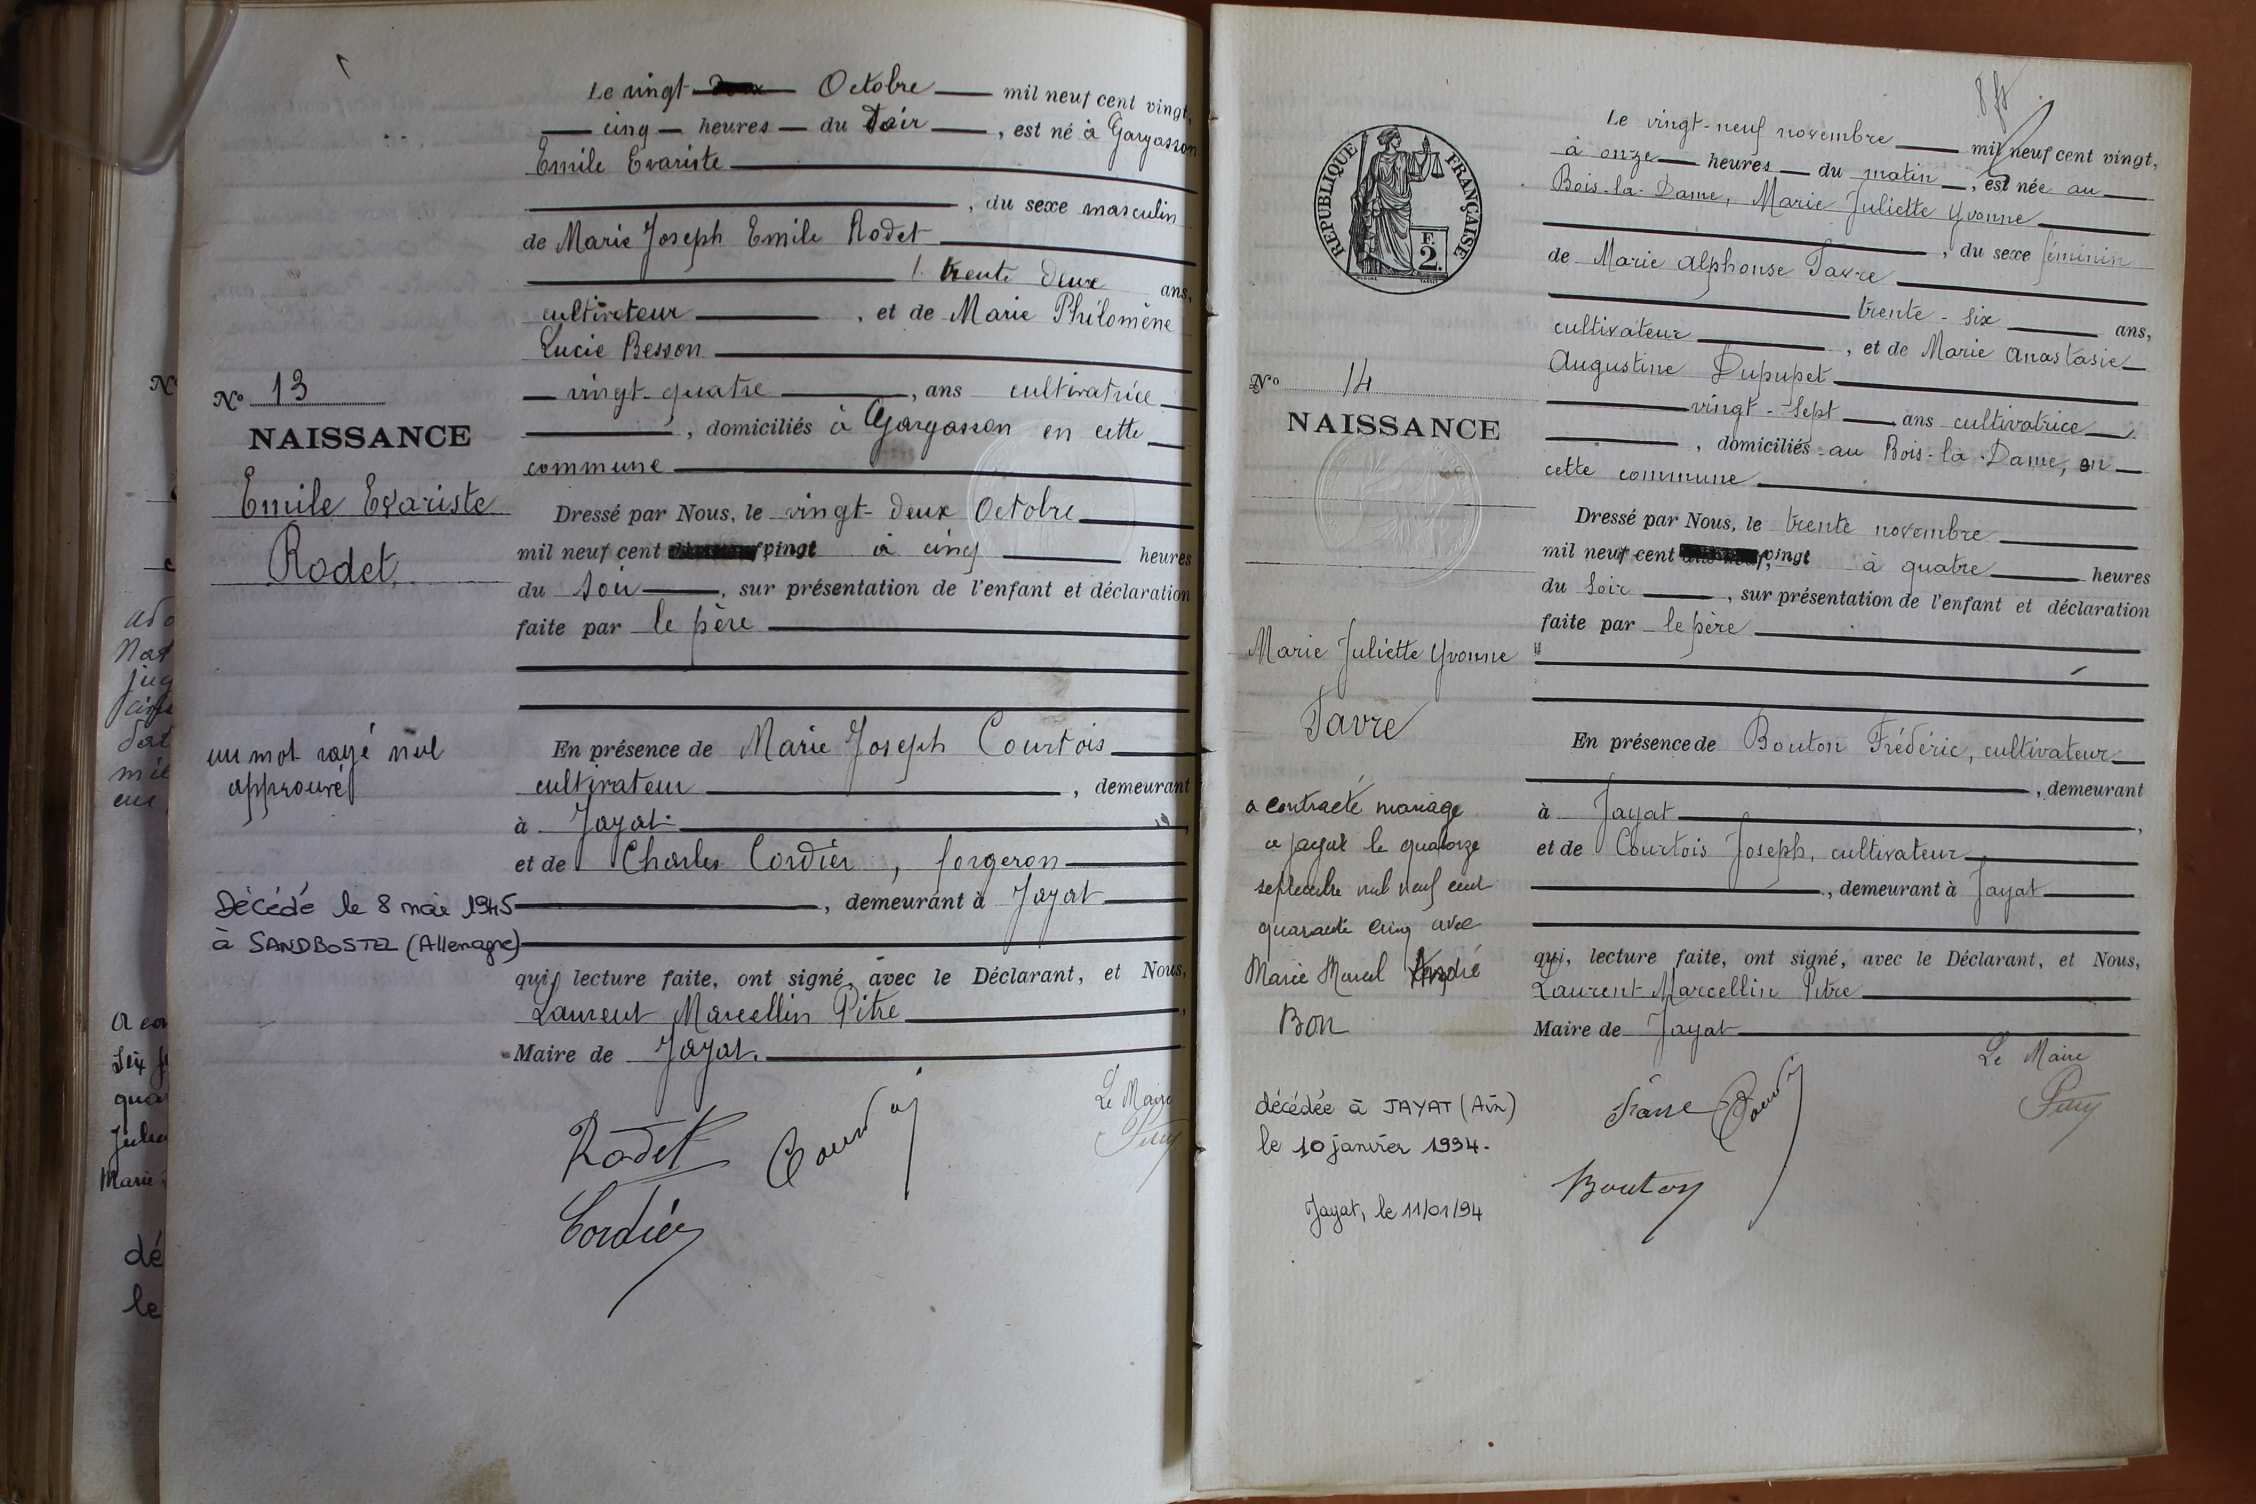 Le vingt Octobre mil neuf cent vingt,
cinq heures du soir, est né à Gargasson
Emile Evariste
, du sexe masculin
de Marie Joseph Emile Rodet
trente deux ans,
cultivateur, et de Marie Philomène
Lucie Besson
vingt-quatre, ans cultivatrice
, domiciliés à Gargasson en cette
commune
Nº 13
NAISSANCE
Emile Evariste
Rodet
Dressé par Nous, le vingt-deux Octobre
mil neuf cent vingt à cinq heures
du soir, sur présentation de l'enfant et déclaration
faite par le père
un mot rayé nul
approuvé
En présence de Marie Joseph Courtois
cultivateur, demeurant
à Jayat
et de Charles Cordier, forgeron
, demeurant à Jayat
Décédé le 8 mai 1945
à SANDBOSTEL (Allemagne)
qui, lecture faite, ont signé, avec le Déclarant, et Nous,
Laurent Marcellin Pitre
Maire de Jayat.
Le Maire
Rodet
Cordier
RÉPUBLIQUE FRANÇAISE
F.
2.
Le vingt-neuf novembre mil neuf cent vingt,
à onze heures du matin, est née au
Bois-la-Dame, Marie Juliette Yvonne
, du sexe féminin
de Marie Alphonse Favre
trente-six ans,
cultivateur, et de Marie Anastasie
Augustine Dupupet
vingt-sept ans cultivatrice
, domiciliés au Bois-la-Dame, en
cette commune
Nº 14
NAISSANCE
Marie Juliette Yvonne
Favre
Dressé par Nous, le trente novembre
mil neuf cent vingt à quatre heures
du soir, sur présentation de l'enfant et déclaration
faite par le père
En présence de Bouton Frédéric, cultivateur
, demeurant
à Jayat,
et de Courtois Joseph, cultivateur
, demeurant à Jayat
a contracté mariage
à Jayat le quatorze
septembre mil neuf cent
quarante cinq avec
Marie Marcel André
Bon
qui, lecture faite, ont signé, avec le Déclarant, et Nous,
Laurent Marcellin Pitre
Maire de Jayat
Le Maire
Favre
Bouton
décédée à JAYAT (Ain)
le 10 janvier 1994.
Jayat, le 11/01/94